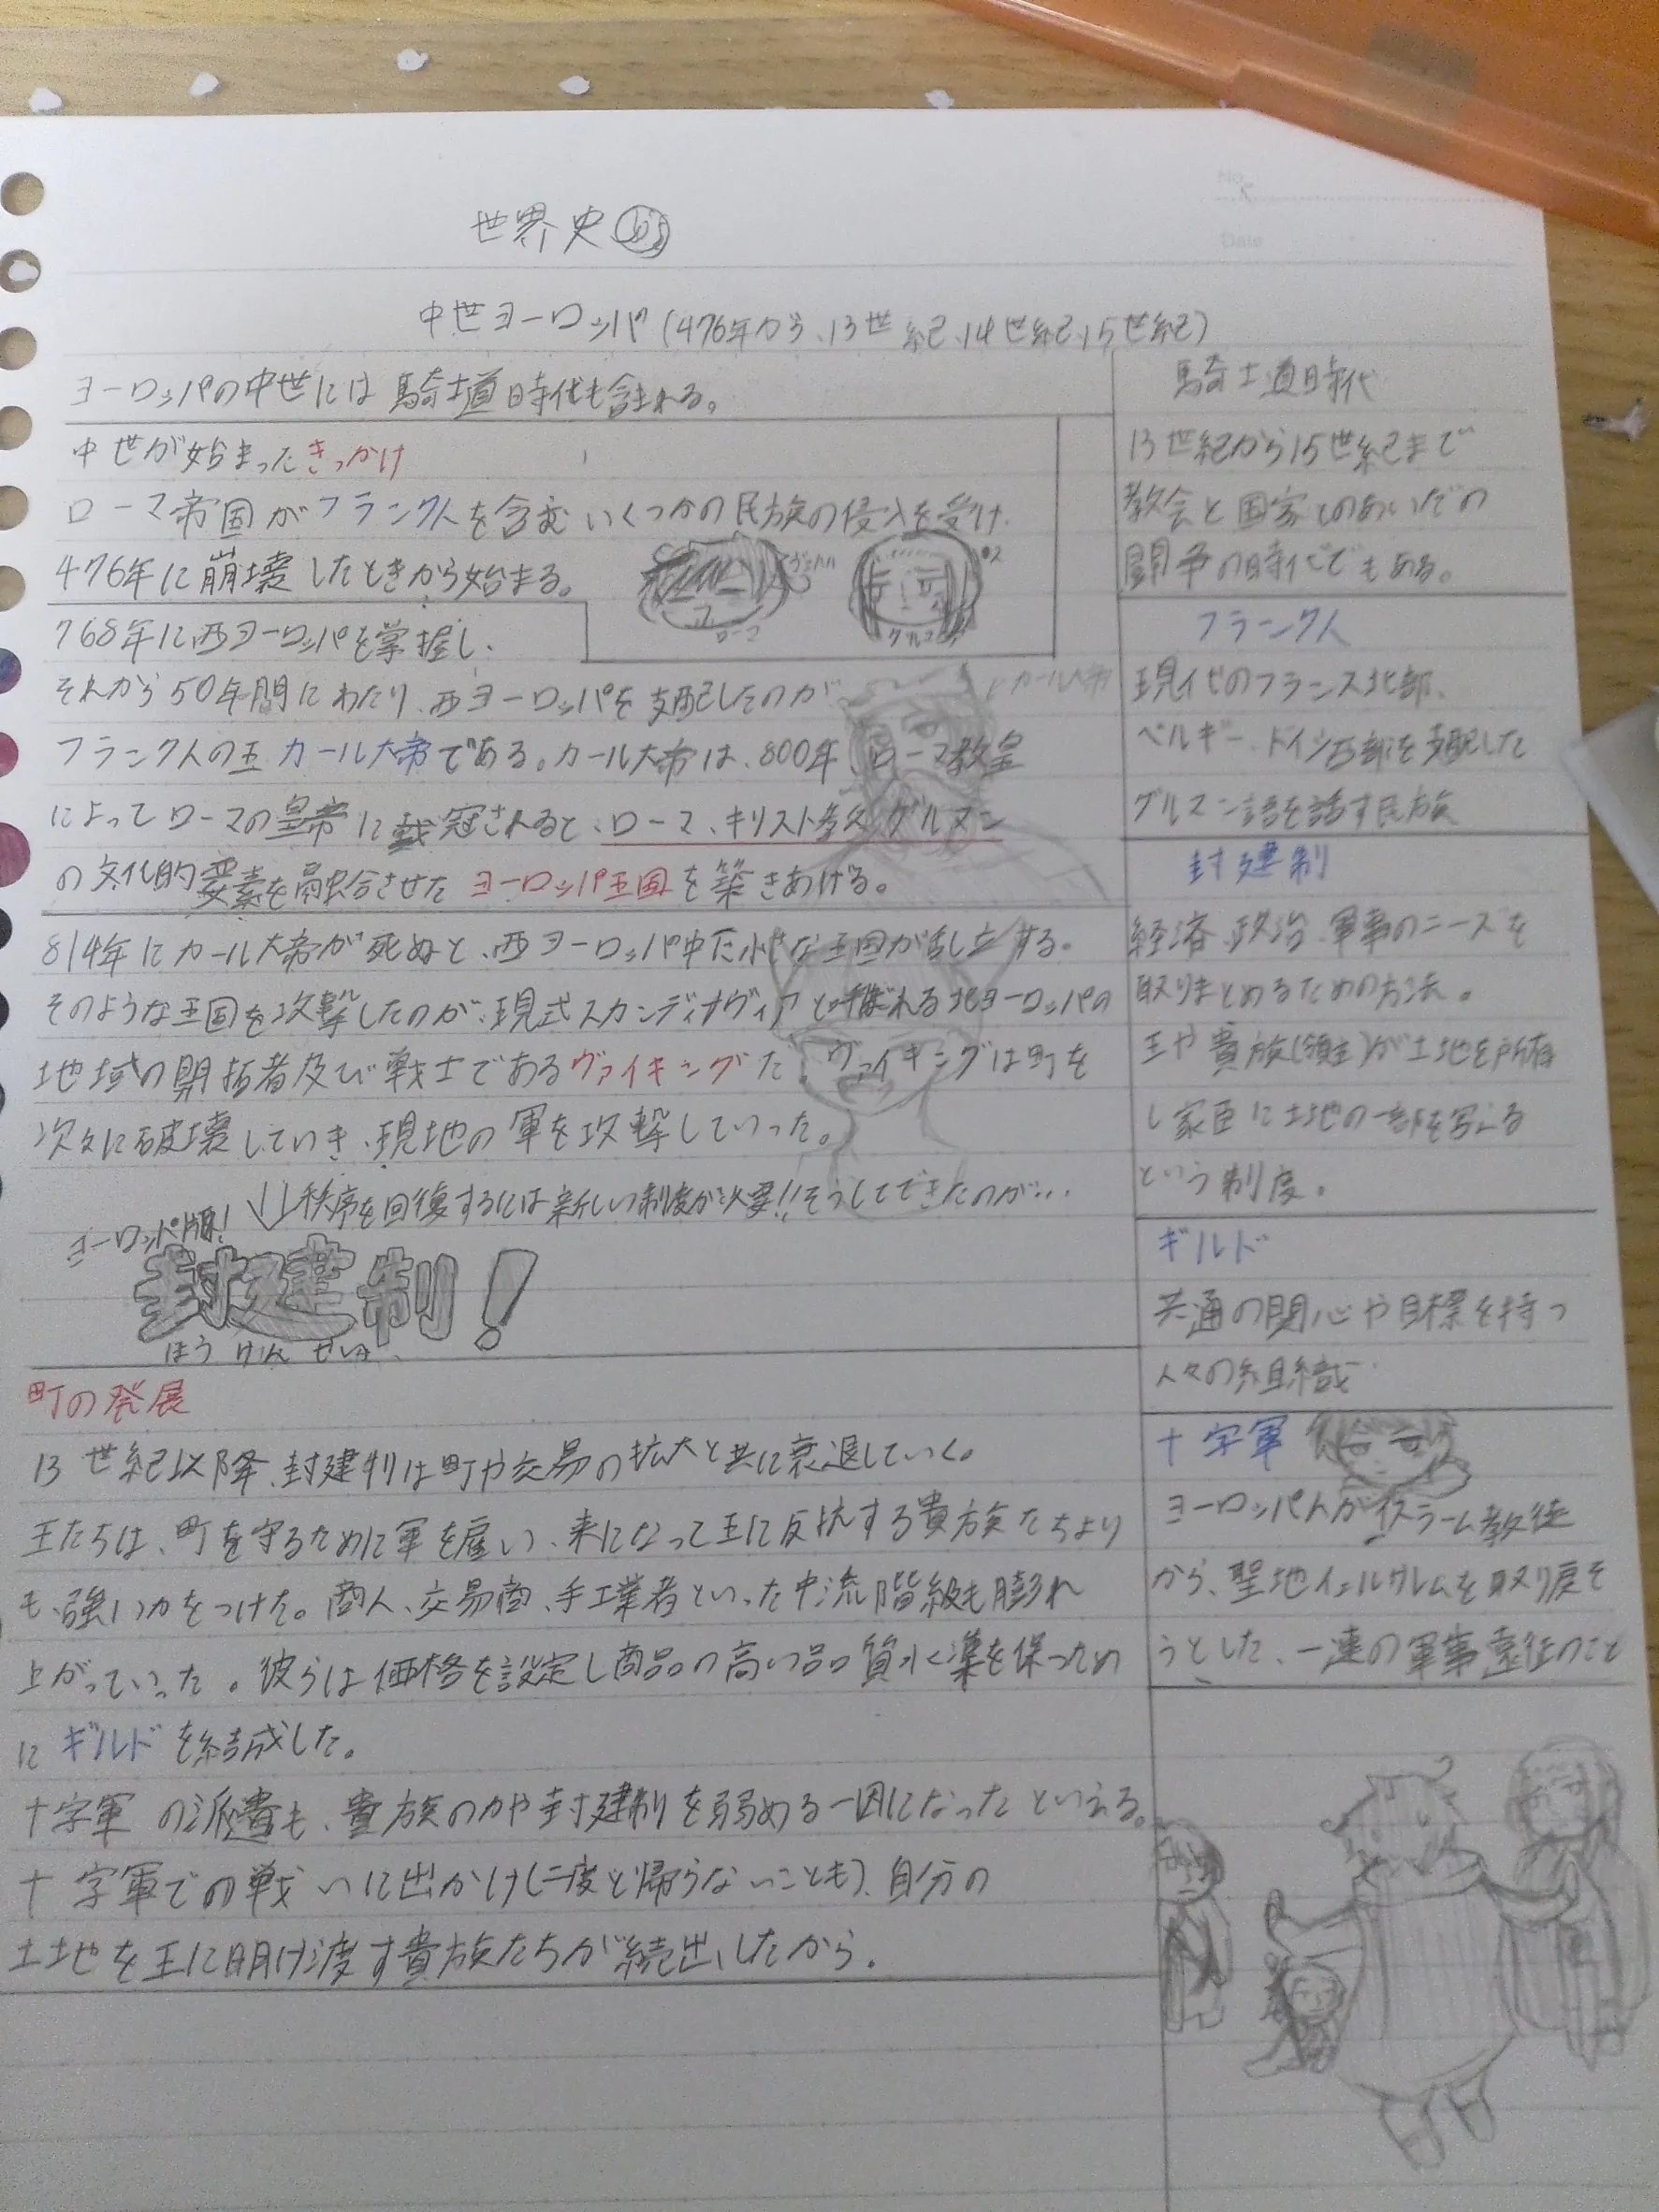 No.
Date
世界史
中世ヨーロッパ(476年から、13世紀、14世紀、15世紀)
ヨーロッパの中世には騎士道時代も含まれる。
中世が始まったきっかけ
ローマ帝国がフランク人を含むいくつかの民族の侵入を受け
476年に崩壊したときから始まる。
ローマ
768年に西ヨーロッパを掌握し、
それから50年間にわたり、西ヨーロッパを支配したのが
カール大帝
フランク人の王カール大帝である。カール大帝は、800年、ローマ教皇
によってローマの皇帝に戴冠されると、ローマ、キリスト教、ゲルマン
の文化的要素を融合させたヨーロッパ王国を築きあげる。
814年にカール大帝が死ぬと、西ヨーロッパ中に小さな王国が乱立する。
そのような王国を攻撃したのが、現代スカンディナヴィアと呼ばれる北ヨーロッパの
地域の開拓者及び戦士であるヴァイキングだ。ヴァイキングは町を
次々に破壊していき、現地の軍を攻撃していった。
秩序を回復するには新しい制度が必要!!そうしてできたのが…
ヨーロッパ版!
封建制!
ほうけんせい
町の発展
13世紀以降、封建制は町や交易の拡大と共に衰退していく。
王たちは、町を守るために軍を雇い、束になって王に反抗する貴族たちより
も、強い力をつけた。商人、交易商、手工業者といった中流階級も膨れ
上がっていった。彼らは価格を設定し商品の高い品質水準を保つため
にギルドを結成した。
十字軍の派遣も、貴族の力や封建制を弱める一因になったといえる。
十字軍での戦いに出かけ(二度と帰らないことも)、自分の
土地を王に明け渡す貴族たちが続出したから。
騎士道時代
13世紀から15世紀まで
教会と国家とのあいだの
闘争の時代でもある。
フランク人
現代のフランス北部、
ベルギー、ドイツ西部を支配した
ゲルマン語を話す民族
封建制
経済、政治、軍事のニーズを
取りまとめるための方法。
王や貴族(領主)が土地を所有
し家臣に土地の一部を与える
という制度。
ギルド
共通の関心や目標を持つ
人々の組織
十字軍
ヨーロッパ人がイスラーム教徒
から、聖地イェルサレムを取り戻そ
うとした、一連の軍事遠征のこと